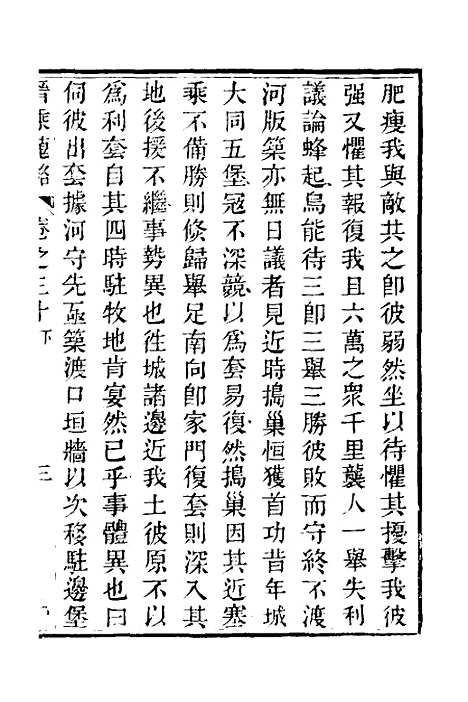 肥瘦我與敵共之即彼弱然坐以待懼其擾擊我彼
强又懼其報復我且六萬之衆千里襲人一舉失利
議論蜂起烏能待三卽三舉三勝彼敗而守終不渡
河版築亦無日議者見近時搗巢恒獲首功昔年城
大同五堡寇不深競以爲套易復然搗巢因其近塞
乘不備勝則倏歸舉足南向卽家門復套則深入其
地後援不繼事勢異也徃城諸邊近我土彼原不以
爲利套自其四時駐牧地肯宴然已乎事體異也曰
伺彼出套據河守先亟築渡口垣牆以次移駐邊堡
晉乘蒐略 卷之三十下 三